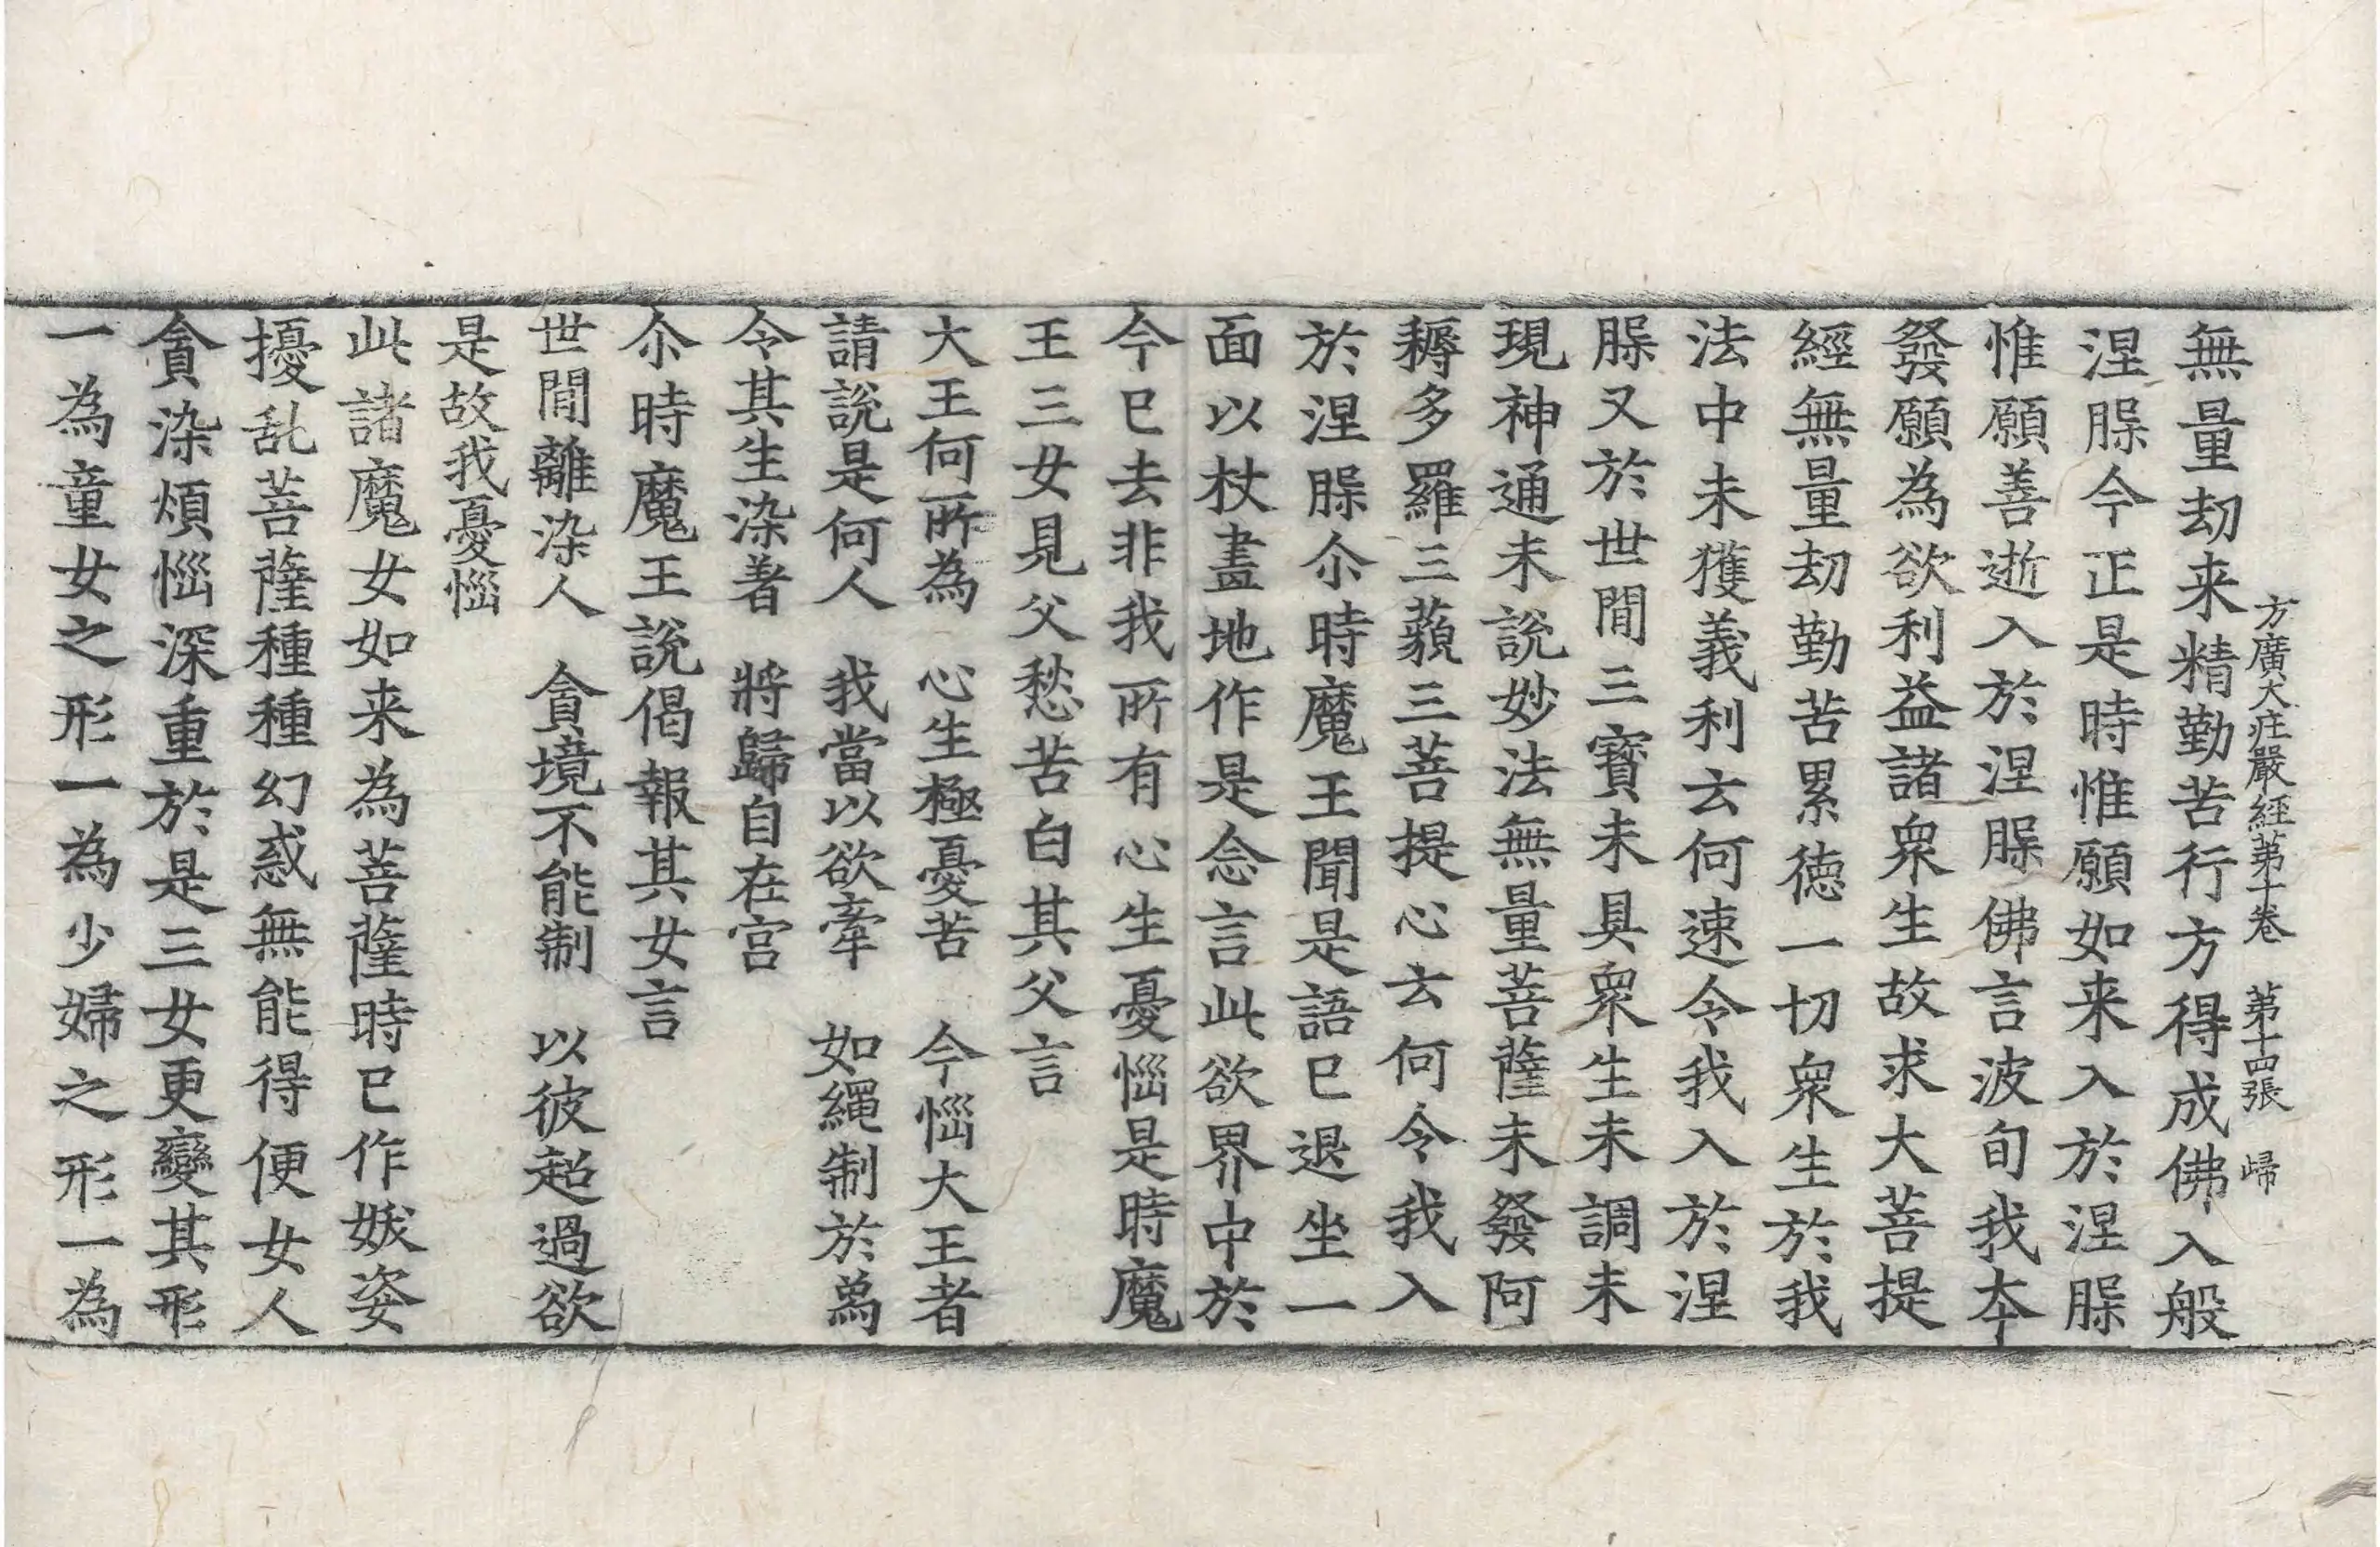 方廣大莊嚴經第十卷　第十四張　歸
無量劫来精勤苦行方得成佛入般
涅槃今正是時惟願如来入於涅槃
惟願善逝入於涅槃佛言波旬我本
發願為欲利益諸衆生故求大菩提
經無量劫勤苦累徳一切衆生於我
法中未獲義利云何速令我入於涅
槃又於世間三寶未具衆生未調未
現神通未說妙法無量菩薩未發阿
耨多羅三藐三菩提心云何令我入
於涅槃尒時魔王聞是語已退坐一
面以杖畫地作是念言此欲界中於
今已去非我所有心生憂惱是時魔
王三女見父愁苦白其父言
大王何所為　心生極憂苦　今惱大王者
請說是何人　我當以欲牽　如繩制於爲
令其生染著　將歸自在宮
尒時魔王說偈報其女言
世間離染人　貪境不能制　以彼超過欲
是故我憂惱
此諸魔女如来為菩薩時已作妖姿
擾乱菩薩種種幻惑無能得便女人
貪染煩惱深重於是三女更變其形
一為童女之形一為少婦之形一為